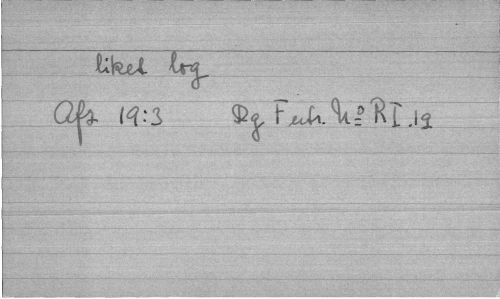 liket log
Afz 19:3 Dg Futr. No RI.19